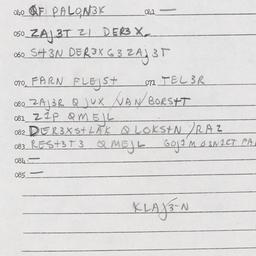 040 QF PALQN3K 041 —
050 ZAJ3T ZI DER3X
060 S43N DER3XG3 ZAJ3T
070 FARN FLEJS+ 071 TEL3R
080 ZAJ3R Q JUX /VAN/ BORS+T
081 ZIP QMEJL
082 DER3XS+LAK Q LOKS+N /RAZ
083 RES+3T3 Q MEJL
084 —
085 —
KLAJ3-N